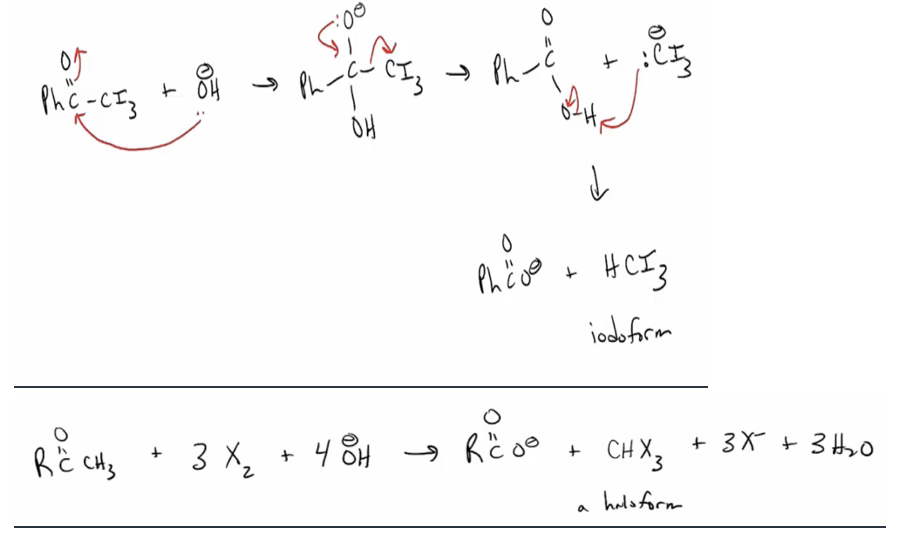 PhC(=O)-CI₃ + :OH⊖ → Ph-C(:O⊖)(OH)-CI₃ → Ph-C(=O)-O-H + :CI₃⊖
↓
PhC(=O)O⊖ + HCI₃
iodoform
RC(=O)CH₃ + 3 X₂ + 4 OH⊖ → RC(=O)O⊖ + CHX₃ + 3X⁻ + 3H₂O
a haloform